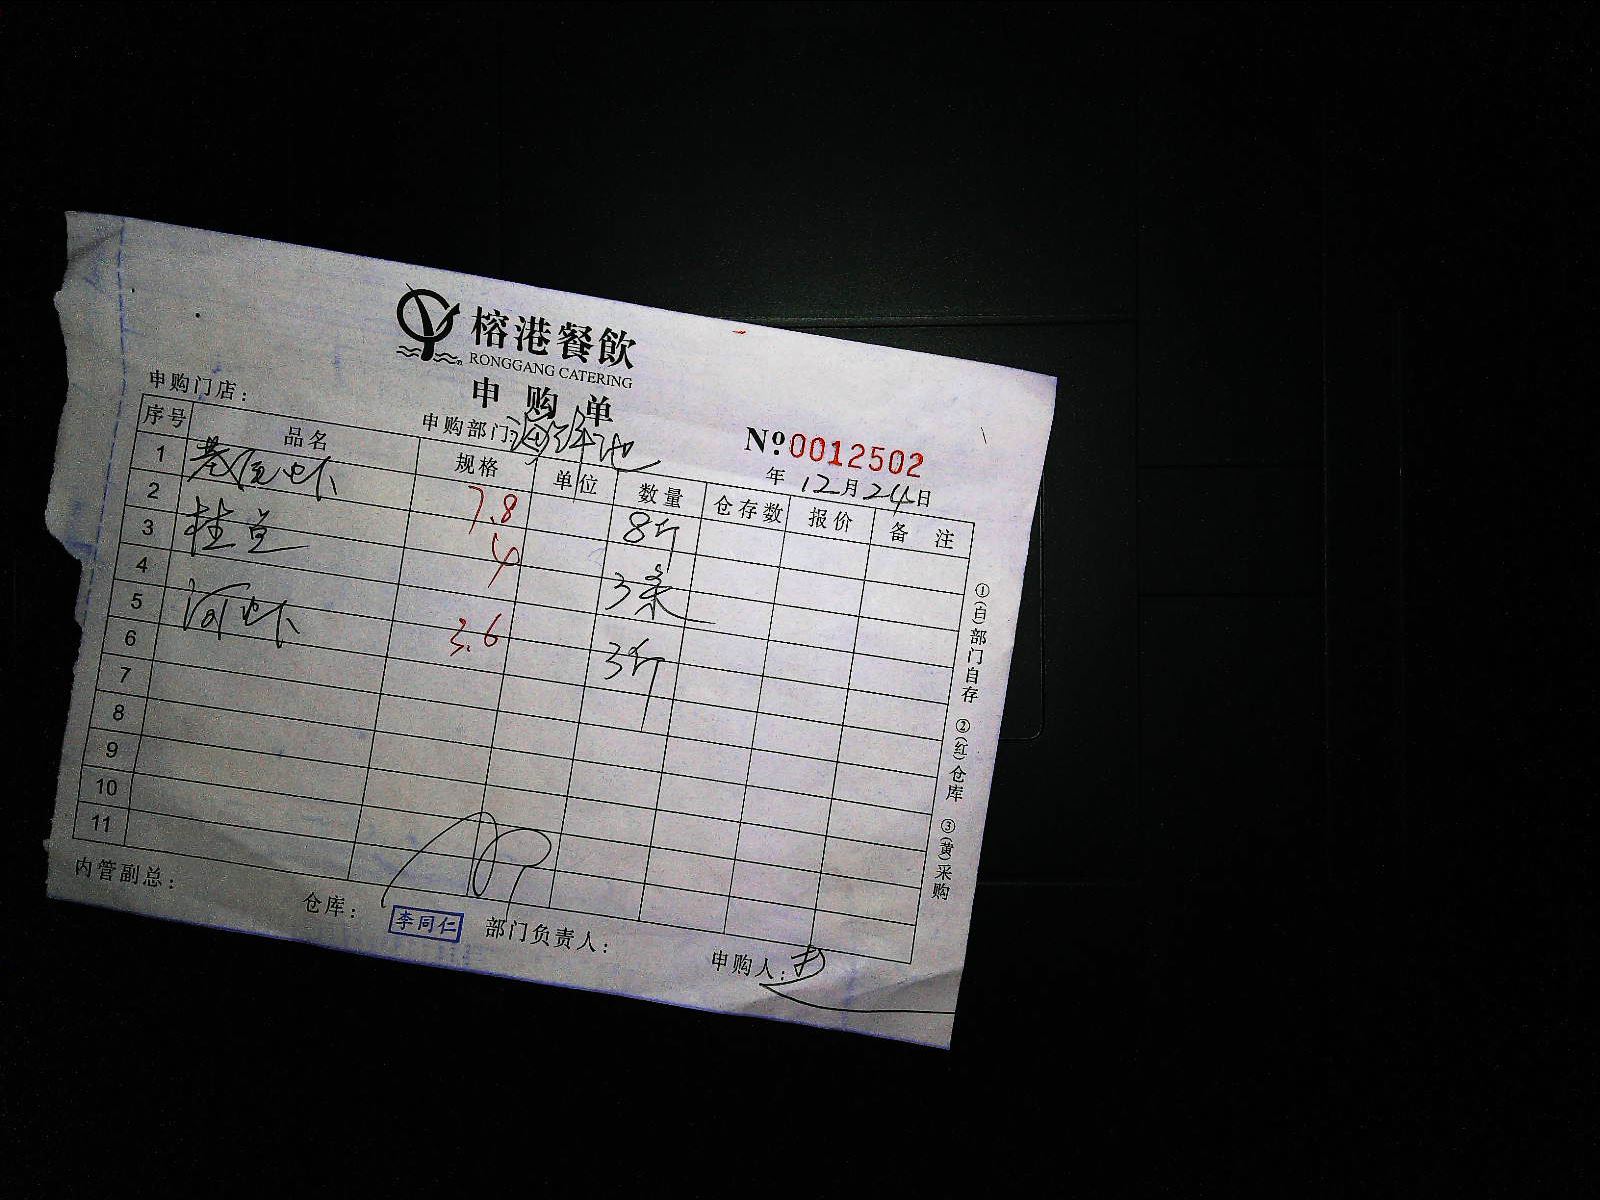 榕港餐飲
RONGGANG CATERING
申购单
申购门店：
申购部门：海鲜池
№0012502
年12月24日
序号 品名 规格 单位 数量 仓存数 报价 备注
1 基围虾 7.8 8斤
2
3 桂鱼 4 3条
4
5 河虾 3.6 3斤
6
7
8
9
10
11
①(白)部门自存 ②(红)仓库 ③(黄)采购
内管副总：
仓库：
李同仁
部门负责人：
申购人：